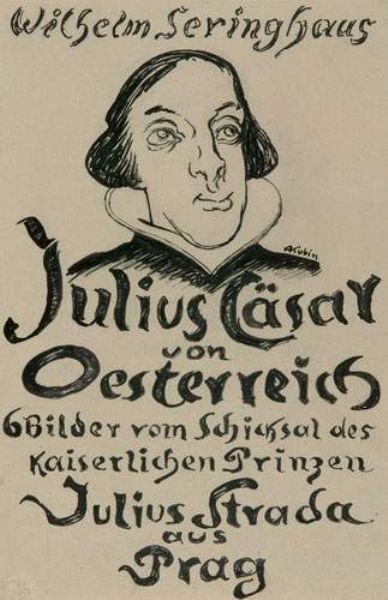 Wilhelm Seringhaus
AKubin
Julius Cäsar
von
Oesterreich
6 Bilder vom Schicksal des
Kaiserlichen Prinzen
Julius Strada
aus
Prag